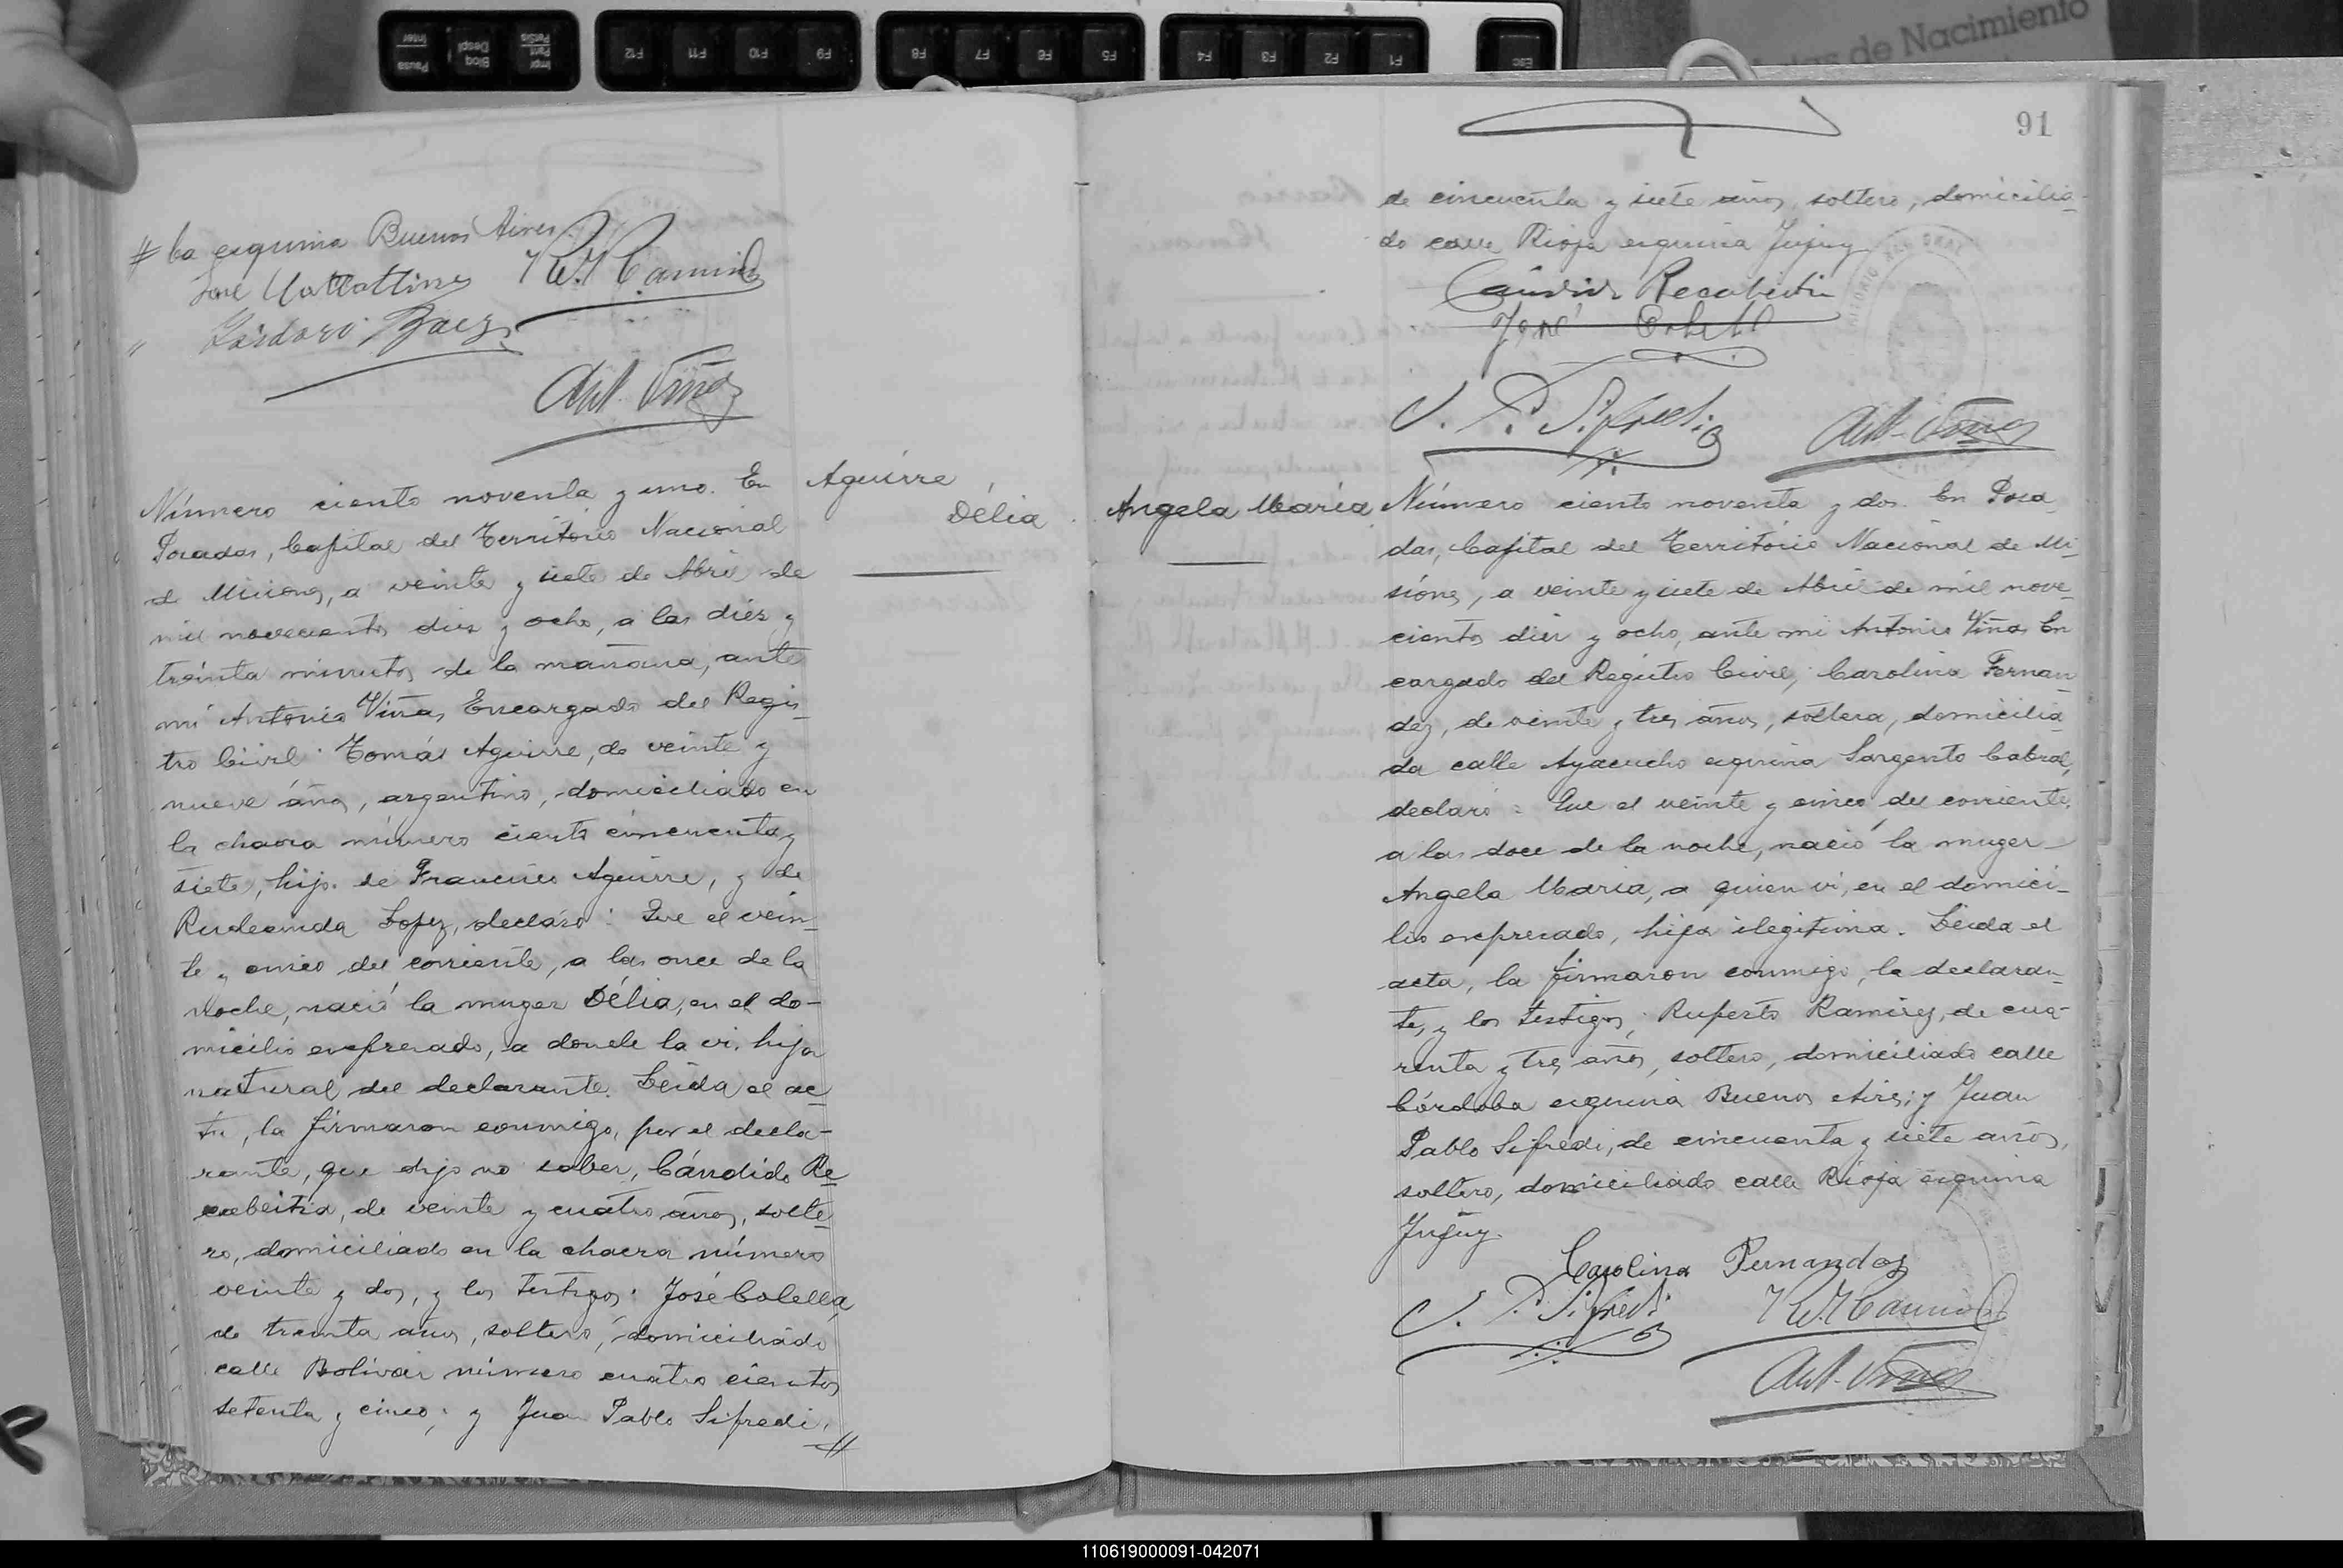 Impr Pant PetSis
Bloq Despl
Pausa Inter
F12
F11
F10
F9
F8
F7
F6
F5
F4
F3
F2
F1
Esc
de Nacimiento
# ba esquina Buenos Aires
Ant. Viñas
Número ciento noventa y uno. En
Posadas, Capital del Territorio Nacional
de Misiones, a veinte y siete de Abril de
mil novecientos diez y ocho, a las diez y
treinta minutos de la mañana, ante
mi Antonio Viñas Encargado del Regis_
tro Civil: Tomás Aguirre, de veinte y
nueve años, argentino, domiciliado en
la chacra número ciento cincuenta y
siete, hijo de Francisco Aguirre, y de
Rudecinda Lopez, declaró: Que el vein_
te y cinco del corriente, a las once de la
noche, nació la muger Délia, en el do-
micilio expresado, a donde la vi, hija
natural del declarante. Leida el ac_
ta, la firmaron conmigo, por el decla-
rante, que dijo no saber, Cándido Re_
cabeitia, de veinte y cuatro años, solte_
ro, domiciliado en la chacra número
veinte y dos, y los testigos: José Colella,
de treinta años, soltero, domiciliado
calle Bolivar número cuatro cientos
setenta y cinco; y Juan Pablo Sifredi,
#
Aguirre
Délia
91
de cincuenta y siete años, soltero, domicilia-
do calle Rioja esquina Jujuy
J. P. Sifredi
Ant. Viñas
Angela Maria
Número ciento noventa y dos. En Posa_
das, Capital del Territorio Nacional de Mi_
siones, a veinte y siete de Abril de mil nove_
cientos diez y ocho, ante mi Antonio Viñas En
cargado del Registro Civil; Carolina Fernan_
dez, de veinte y tres años, soltera, domicilia_
da calle Ayacucho esquina Sargento Cabral,
declaró: Que el veinte y cinco del corriente,
a las doce de la noche, nació la muger
Angela Maria, a quien vi, en el domici-
lio expresado, hija ilegitima. Leida el
acta, la firmaron conmigo, la declaran_
te, y los testigos; Ruperto Ramirez, de cua-
renta y tres años, soltero, domiciliado calle
Córdoba esquina Buenos Aires; y Juan
Pablo Sifredi, de cincuenta y siete años,
soltero, domiciliado calle Rioja esquina
Jujuy.
Carolina Fernandez
J. P. Sifredi
Ant. Viñas
110619000091-042071